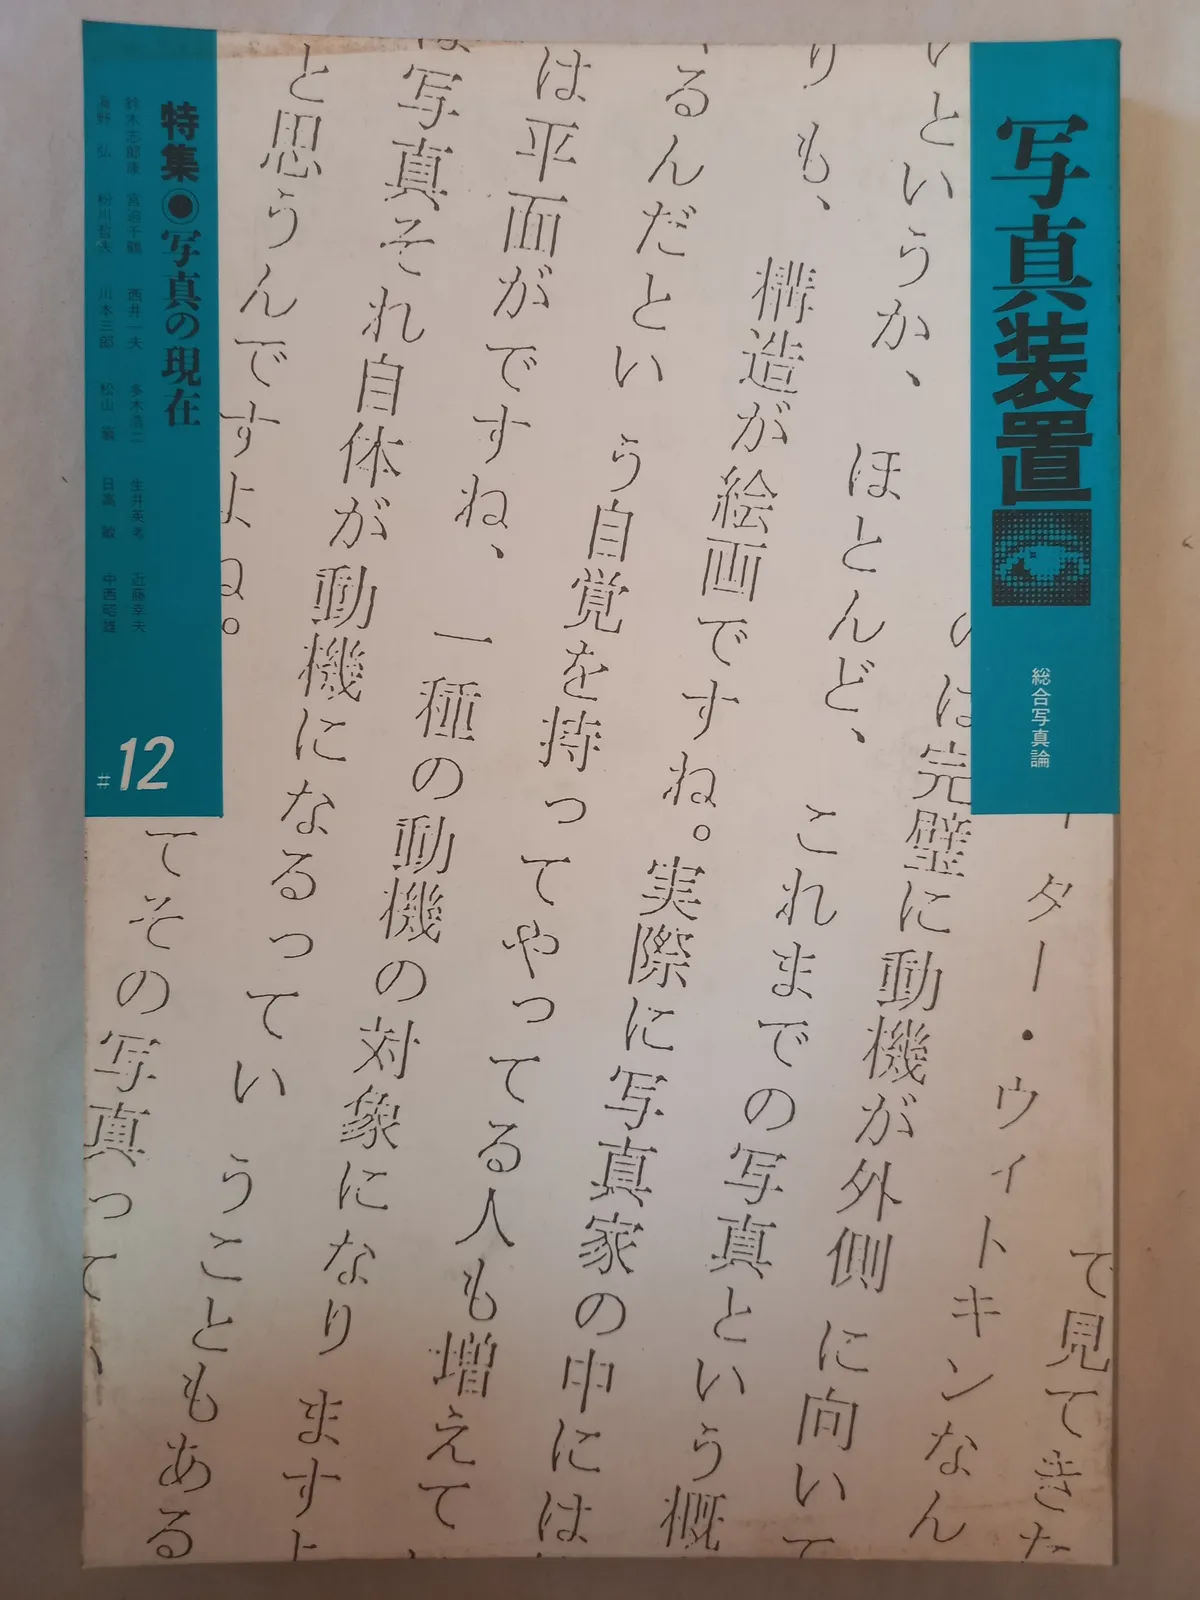 写真装置
総合写真論
で見てきた
ーター・ウィトキンなん
のは完璧に動機が外側に向いて
いというか、ほとんど、これまでの写真という概
りも、構造が絵画ですね。実際に写真家の中には
るんだという自覚を持ってやってる人も増えて
は平面がですね、一種の動機の対象になります
は写真それ自体が動機になるっていうこともある
と思うんですよね。
てその写真って
特集◉写真の現在
鈴木志郎康 宮迫千鶴 西井一夫 多木浩二 生井英考 近藤幸夫
海野弘 粉川哲夫 川本三郎 松山巌 日高敏 中西昭雄
#12